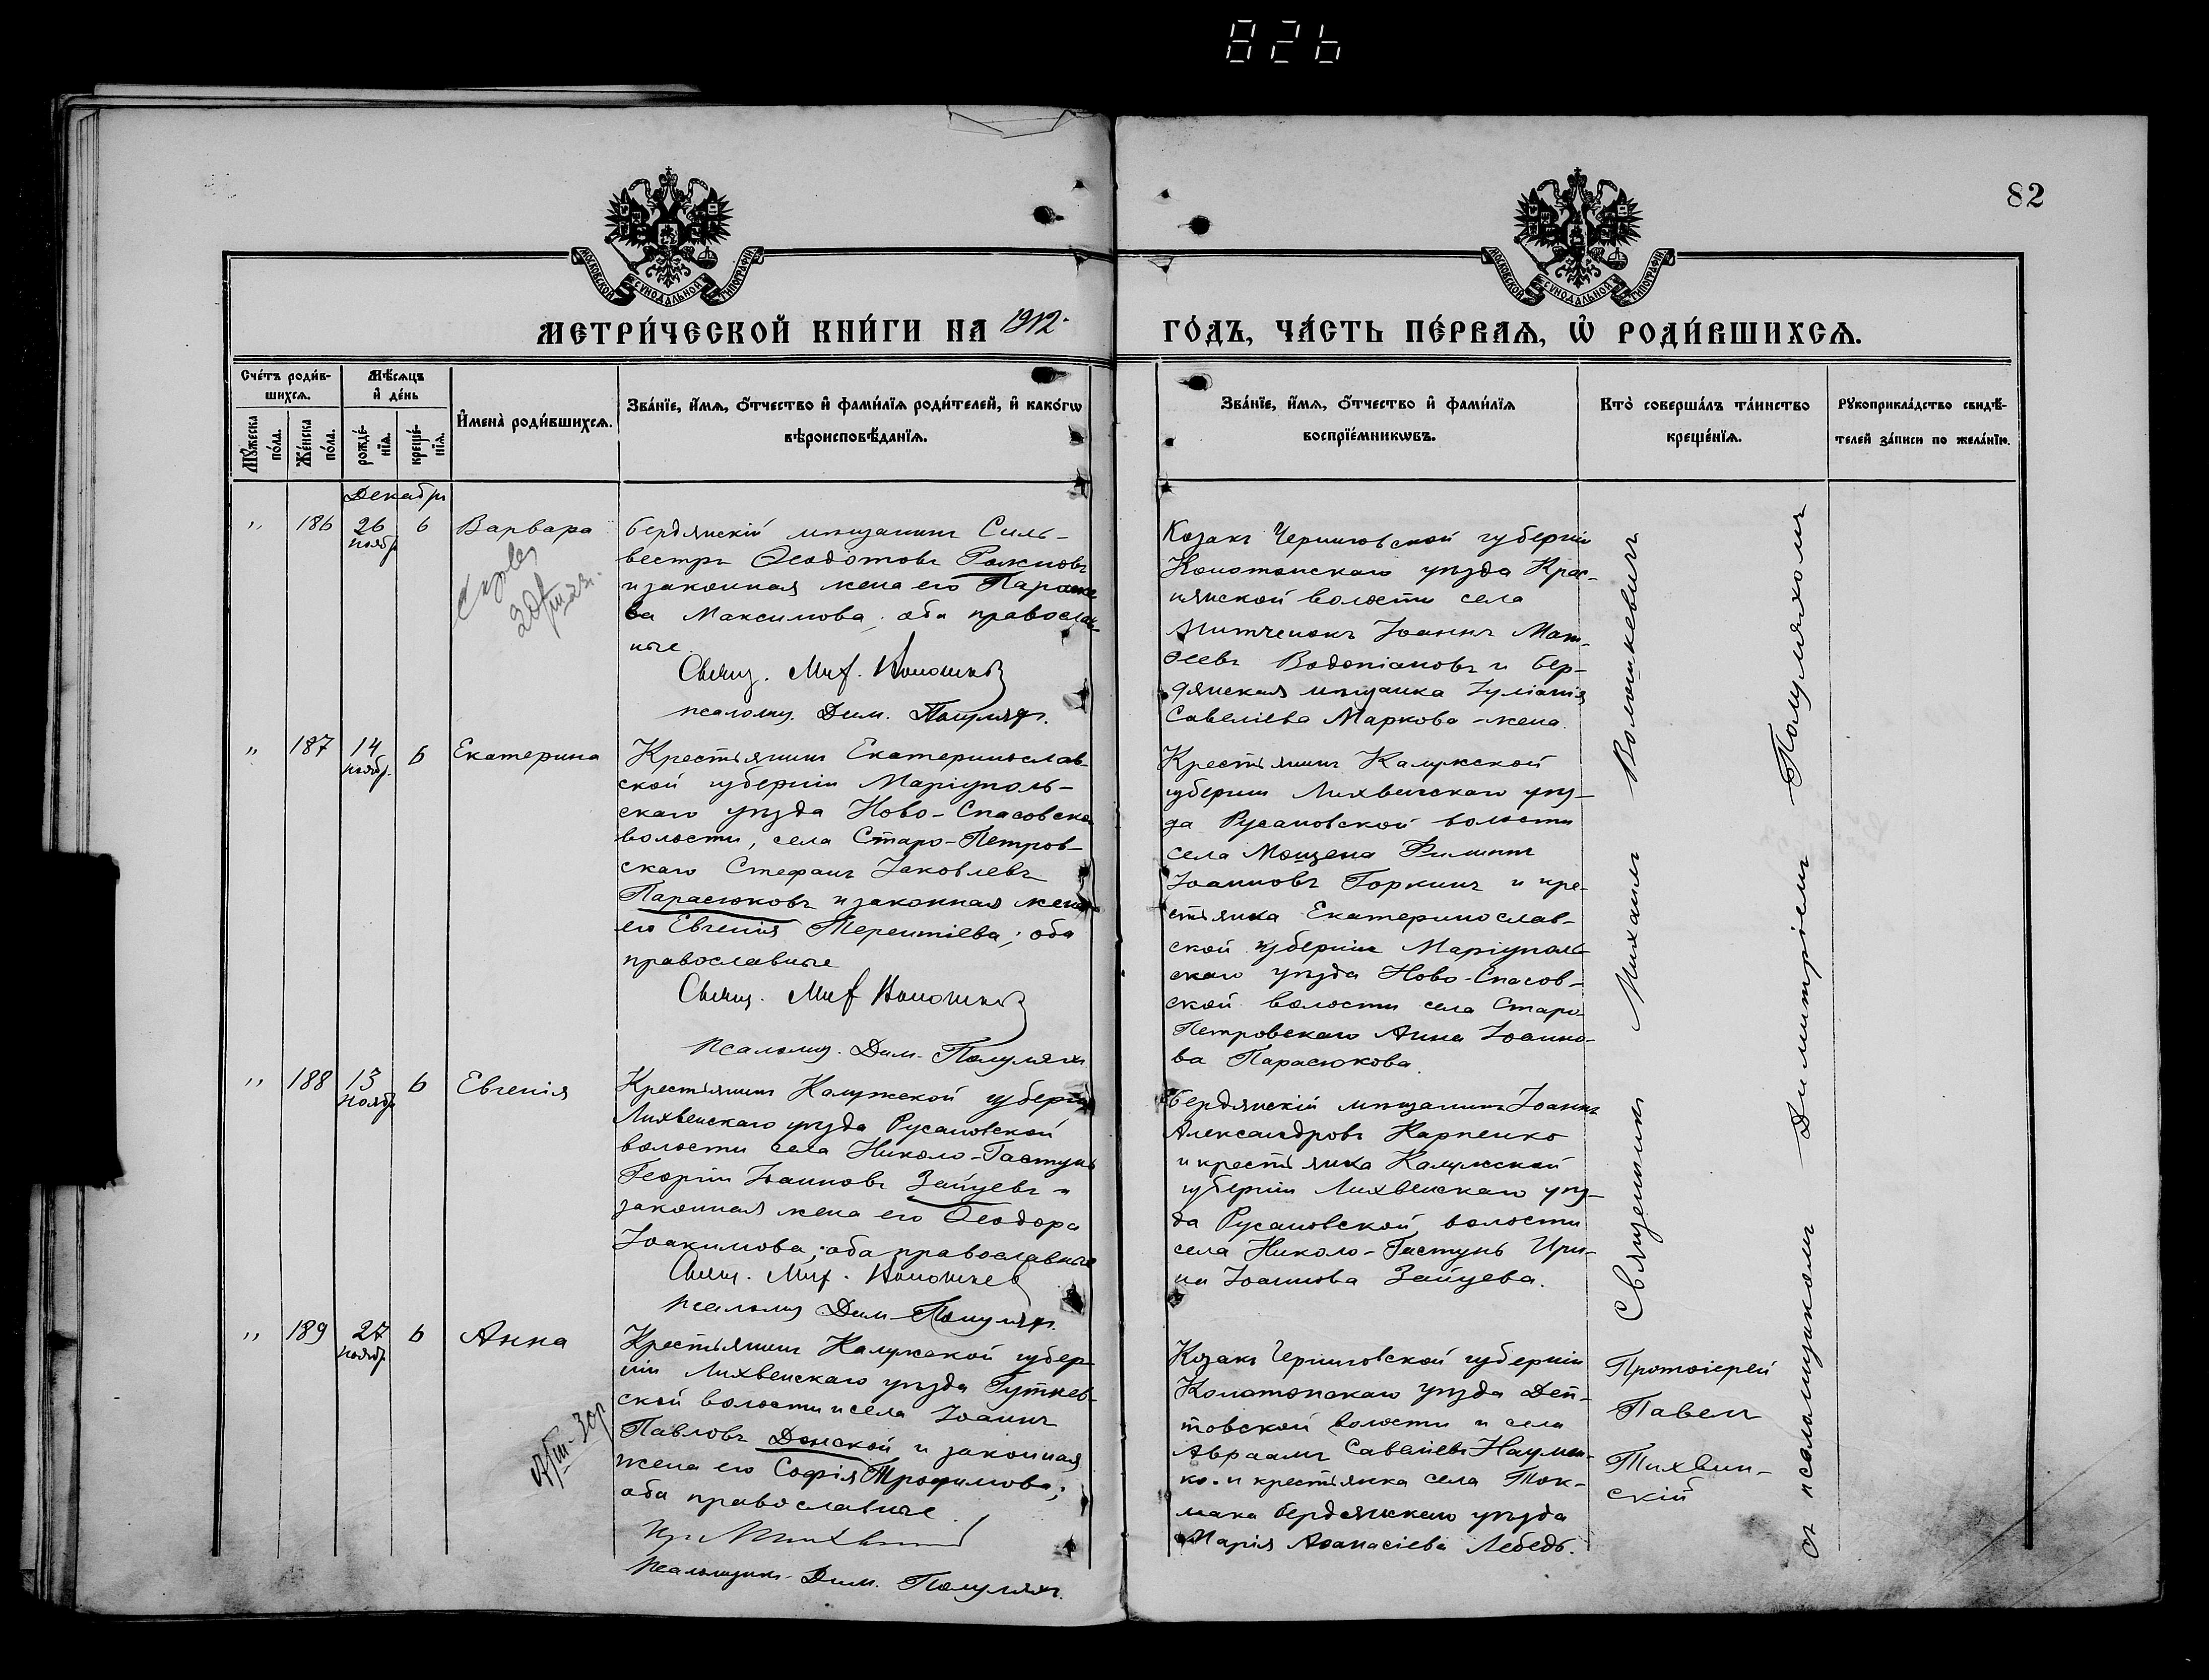 826
82
МОСКОВСКОЙ СѴНОДАЛЬНОЙ ТИПОГРАФІИ
МОСКОВСКОЙ СѴНОДАЛЬНОЙ ТИПОГРАФІИ
МЕТРИ́ЧЕСКОЙ КНИ́ГИ НА 1912
ГО́ДЪ, ЧА́СТЬ ПЕ́РВАѦ, Ѡ҆ РОДИ́ВШИХСѦ.
Сче́тъ роди́в-
шихсѧ.
Мꙋ́жеска по́ла.
Же́нска по́ла.
Мѣ́сѧцъ
и҆ де́нь
рожде́-
нїѧ.
креще́-
нїѧ.
И҆мена̀ роди́вшихсѧ.
Зва́нїе, и҆́мѧ, ѻ҆́тчество и҆ фами́лїѧ роди́телей, и҆ како́гѡ
вѣроисповѣ́данїѧ.
Зва́нїе, и҆́мѧ, ѻ҆́тчество и҆ фами́лїѧ
воспрїе́мникѡвъ.
Кто̀ соверша́лъ та́инство
креще́нїѧ.
Рꙋкоприкла́дство свидѣ́-
телей за́писи по жела́нїю.
Декабрь
" 186 26 ноябр. 6 Варвара
Бердянскій мѣщанинъ Силь-
вестръ Ѳеодотовъ Рожновъ
и законная жена его Параске
ва Максимова; оба православ-
ные
Свящ. Мих. Волошкев
псаломщ. Дим. Полумях.
Козакъ Черниговской губерніи
Конотопскаго уѣзда Крас-
нянской волости села
Іоаннъ Мат-
ѳеевъ Водопіановъ и бер-
дянская мѣщанка Іуліанія
Савеліева Маркова - жена.
" 187 14 ноябр. 6 Екатерина
Крестьянинъ Екатеринослав-
ской губерніи Маріуполь-
скаго уѣзда Ново-Спасовской
волости, села Старо-Петров-
скаго Стефанъ Іаковлевъ
Парасюковъ и законная жена
его Евгенія Терентіева; оба
православные
Свящ. Мих. Волошкев
Псаломщ. Дим. Полумях
Крестьянинъ Калужской
губерніи Лихвинскаго уѣз-
да Русановской волости
села Мощена Филиппъ
Іоанновъ Горкинъ и кре-
стьянка Екатеринослав-
ской губерніи Маріуполь-
скаго уѣзда Ново-Спасов-
ской волости села Старо-
Петровскаго Анна Іоанно-
ва Парасюкова.
" 188 13 ноябр. 6 Евгенія
Крестьянинъ Калужской губерніи
Лихвенскаго уѣзда Русановской
волости села Николо-Гастунь
Георгій Іоанновъ Зайцевъ и
законная жена его Ѳеодора
Іоакимова; оба православные
Свящ. Мих. Волошкев
псаломщ. Дим. Полумях.
Бердянскій мѣщанинъ Іоаннъ
Александровъ Карпенко
и крестьянка Калужской
губерніи Лихвенскаго уѣз-
да Русановской волости
села Николо-Гастунь Ири-
на Іоаннова Зайцева.
" 189 27 ноябр. 6 Анна
Крестьянинъ Калужской губер-
ніи Лихвенскаго уѣзда Гутнев-
ской волости и села Іоаннъ
Павловъ Донской и законная
жена его Софія Трофимова;
оба православные
псаломщикъ Дим. Полумях.
Козакъ Черниговской губерніи
Конотопскаго уѣзда Деп-
товской волости и села
Авраамъ Савеліевъ Наумен-
ко и крестьянка села Ток-
мака бердянскаго уѣзда
Марія Аѳанасіева Лебедь.
Священникъ Михаилъ Волошкевичъ
Протоіерей
Павелъ
Тихвин-
скій
съ псаломщикомъ Димитріемъ Полумяхомъ